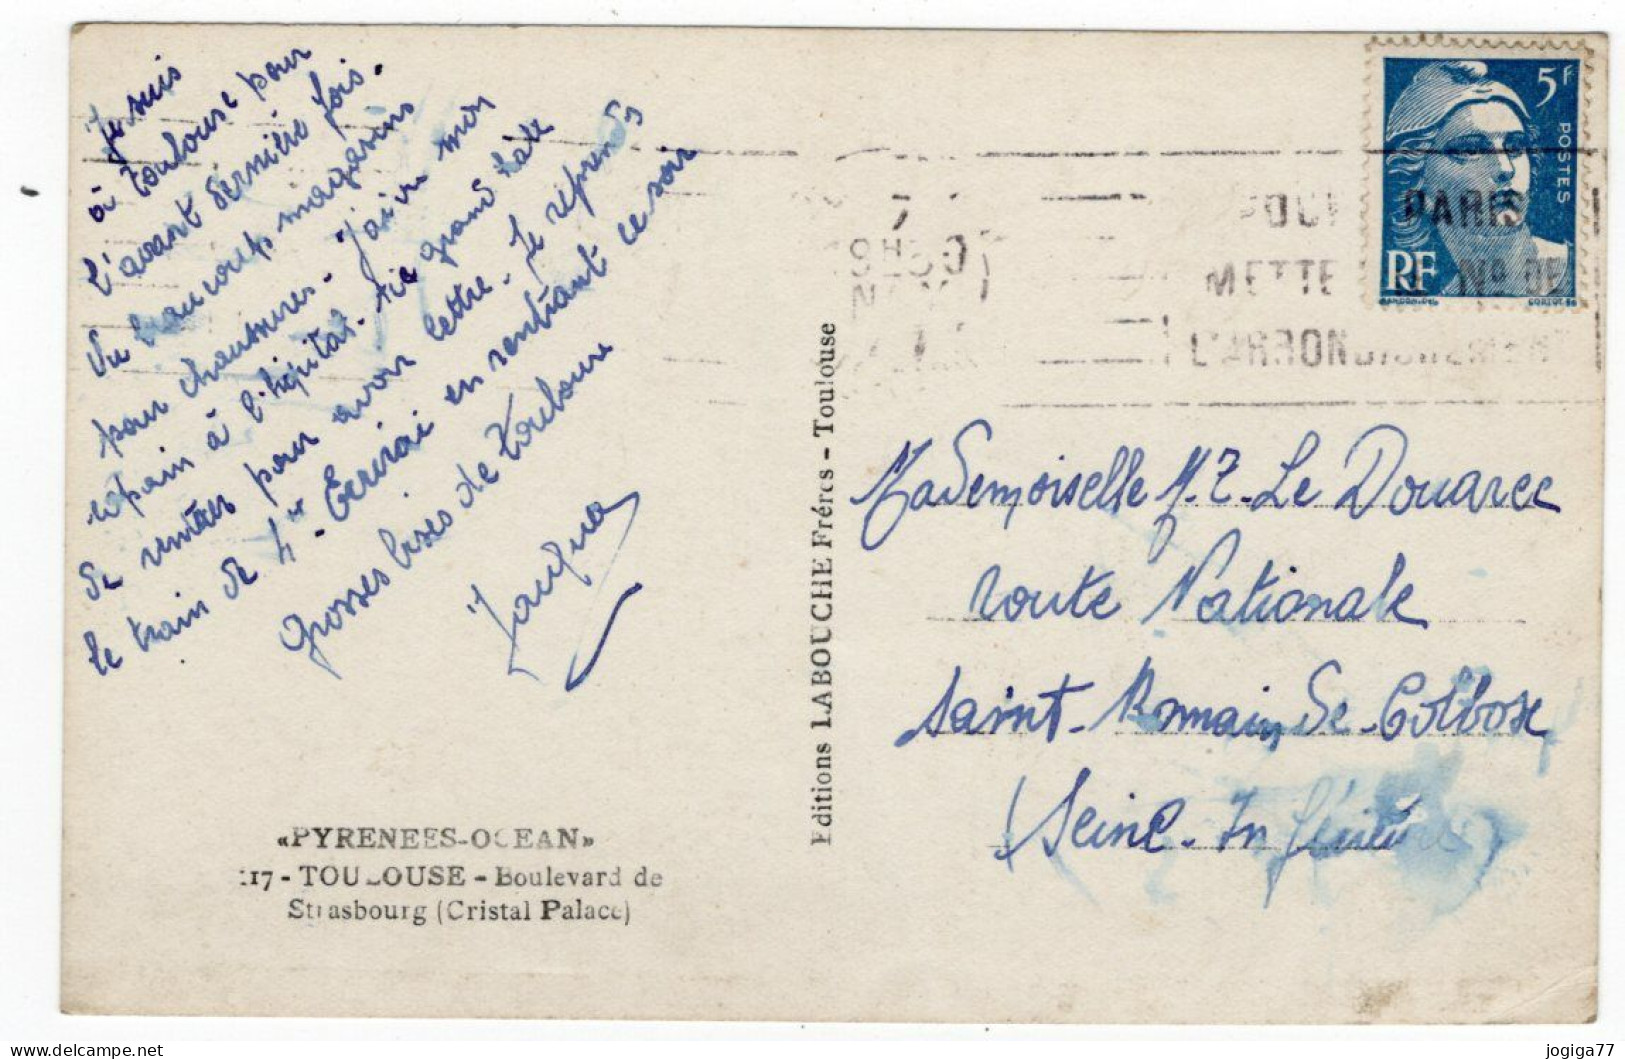 Je suis
à Toulouse pour
l'avant dernière fois.
Vu beaucoup magasins
pour chaussures. J'ai vu mon
copain à l'hôpital. Ai grand hâte
de rentrer pour avoir lettre. Je reprends
le train de 4H. Écrirai en rentrant ce soir
Grosses bises de Toulouse
Jacques
«PYRENEES-OCEAN»
117 - TOULOUSE - Boulevard de
Strasbourg (Cristal Palace)
Editions LABOUCHE Frères - Toulouse
5F
POSTES
RF
GANDON.DEL
POUR PARIS
METTE Nº DE
L'ARRONDISSEMENT
Mademoiselle M.T. Le Douarec
route Nationale
Saint-Romain de-Colbosc
(Seine-Inférieure)
jogiga77